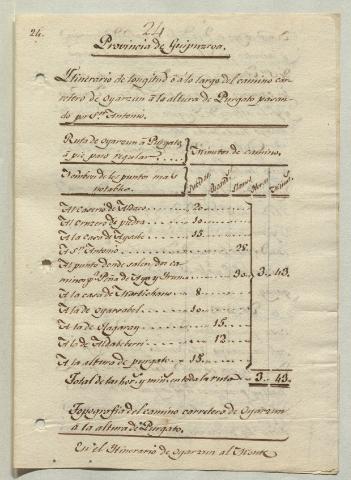 24.
24
Provincia de Guipuzcoa.
Itinerario de longitud ó á lo largo del camino car-
retero de oyarzun á la altura de Purgato pasan-
do por Sn. Antonio.
Ruta de oyarzun á Purgato
á pie paso regular
Minutos de camino.
Nombres de los puntos mas
notables.
Al Caserio de Aldaco 20
Al Cruzero de piedra 10
A la Casa de 15
A Sn. Antonio 28
Al punto donde salen dos ca-
minos pa. Peña de Aya y Irun 30 3. 43.
A la casa de 8
A la de oyarzabal 10
A la de Olaganzy 15
A la de 12
A la altura de purgato 15
Total de las hors. y mins. en toda la ruta 3. 43.
Topografia del camino carretero de oyarzun
á la altura de Purgato.
En el Itinerario de oyarzun al Monte